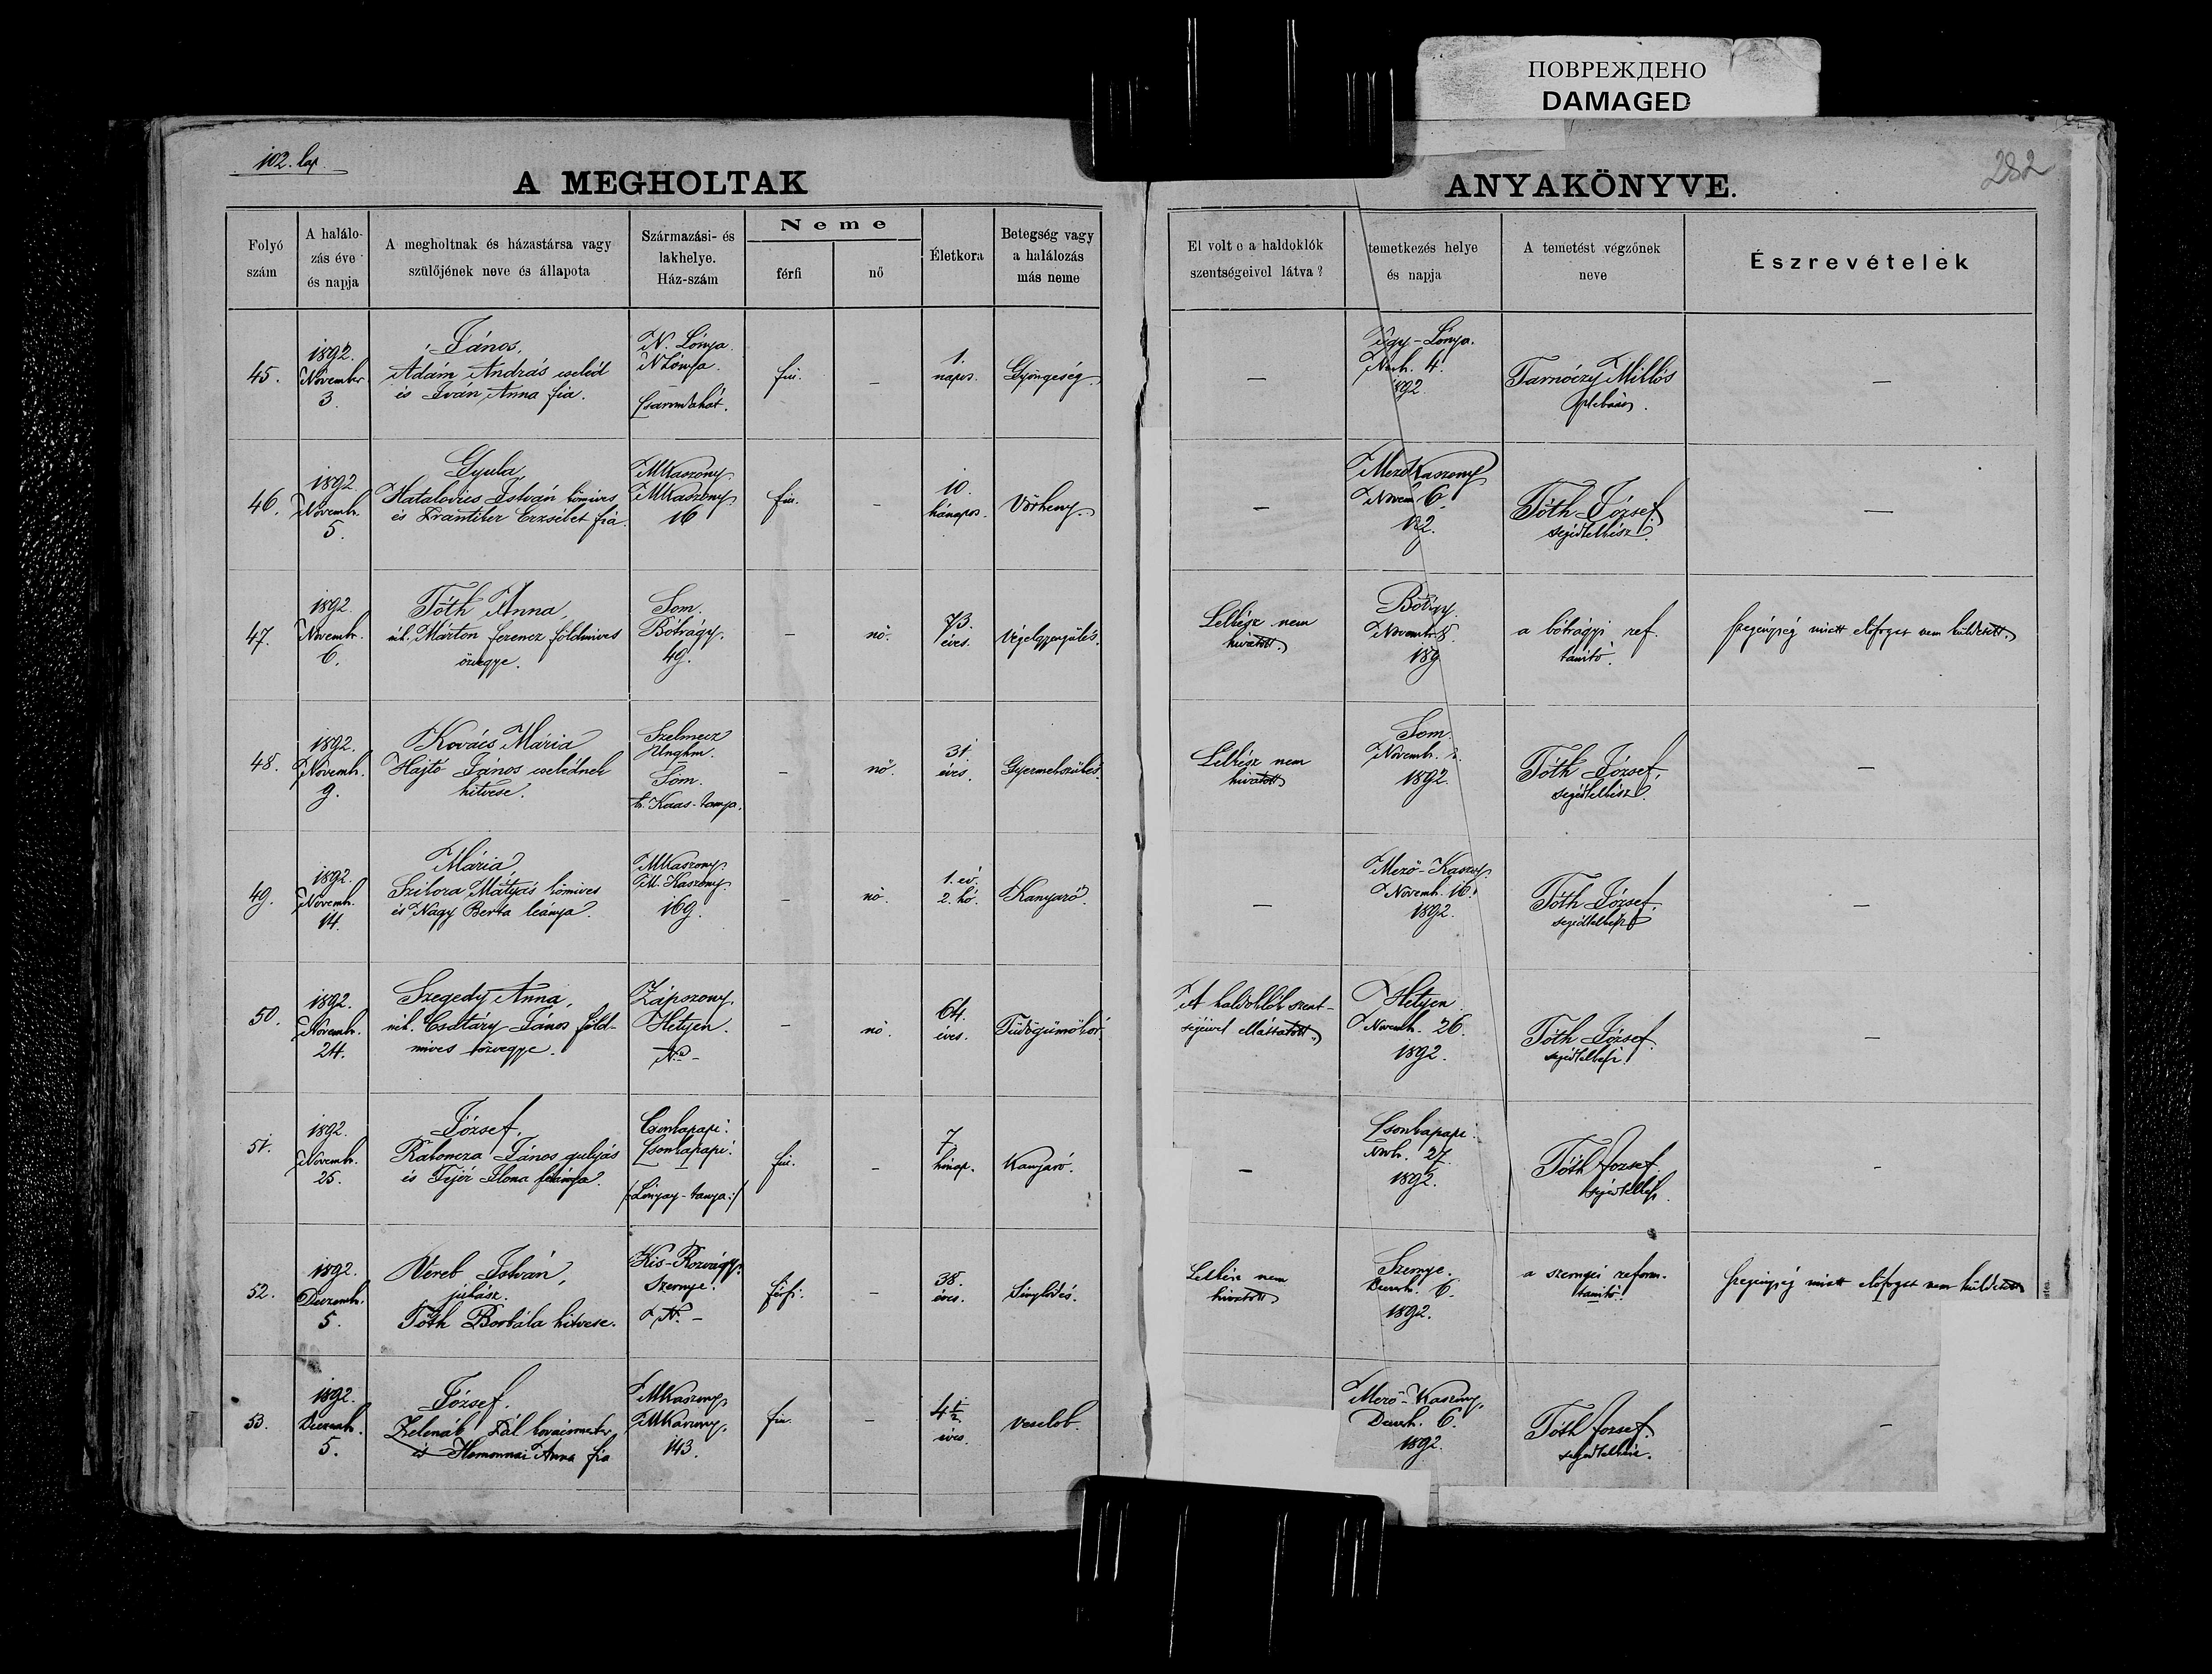 ПОВРЕЖДЕНО
DAMAGED
102. lap.
282
A MEGHOLTAK
ANYAKÖNYVE.
Folyó
szám
A halálo-
zás éve
és napja
A megholtnak és házastársa vagy
szülőjének neve és állapota
Származási- és
lakhelye.
Ház-szám
Neme
férfi
nő
Életkora
Betegség vagy
a halálozás
más neme
El volt e a haldoklók
szentségeivel látva?
temetkezés helye
és napja
A temetést végzőnek
neve
Észrevételek
45.
1892.
November
3.
János,
Ádám András cseléd
és Iván Anna fia.
N. Lónya.
N Lónya.
—
fiú.
—
1.
napos.
Gyöngeség.
—
Nagy-Lónya.
Novb. 4.
1892.
Tarnóczy Miklós
plebános.
—
46.
1892
Novemb.
5.
Gyula,
Hatalovics István kőmives
és Erzsébet fia.
MKaszony.
MKaszony.
16
fiú.
—
10.
hónapos.
Vörheny.
—
Mező Kaszony
Novem 6.
Tóth József
segédlelkész.
—
47.
1892.
Novemb.
6.
Tóth Anna,
néh. Márton Ferencz földmives
özvegye.
Som.
Bótrágy.
49.
—
nő.
73.
éves.
Végelgyengülés.
Lelkész nem
hivatott.
Novemb 8.
189
a bótrágyi ref.
tanító.
szegénység miatt előfogat nem küldetett.
48.
1892.
Novemb.
9.
Kovács Mária
Hajtó János cselédnek
hitvese.
Szelmecz
Unghm.
—
Som.
tanya.
—
nő.
31
éves.
Gyermekszülés.
Lelkész nem
hivatott
Som.
Novemb.
1892.
Tóth József,
segédlelkész.
—
49.
1892.
Novemb.
14.
Mária,
Szikora Mátyás kőmives
és Nagy Berta leánya.
MKaszony.
M. Kaszony
169.
—
nő.
1. év.
2. hó.
Kanyaró.
—
Mező-Kaszony.
Novemb. 16.
1892.
Tóth József,
segédlelkész
—
50.
1892.
Novemb.
24.
Szegedy Anna,
néh. János föld-
mives özvegye.
Zápszony.
Hetyen.
No –
—
nő.
64.
éves.
Tüdőgümőkór.
A haldoklók szent-
ségeivel elláttatott.
Hetyen
Novemb. 26.
1892.
Tóth József.
segédlelkész.
—
51.
1892.
Novemb.
25.
József,
János gulyás
és Fejér Ilona
Csonkapapi.
Csonkapapi.
/:Lónyay-tanya:/
fiú.
—
7
hónap.
Kanyaró.
—
Csonkapapi.
Novb. 27.
1892.
Tóth József
segédlelkész.
-
52.
1892.
Deczemb.
5.
Vereb István,
juhász.
Tóth Borbála hitvese.
Kis-Rozvágy.
Szernye.
N. –
férfi.
—
38.
éves.
Sínylődés.
Lelkész nem
hivatott
Szernye.
Deczb. 6.
1892.
a szernyei reform.
tanító.
szegénység miatt előfogat nem küldetett
53.
1892.
Deczemb.
5.
József.
Zelenák Pál kovácsmester
és Homonnai Anna fia
MKaszony
MKaszony.
143.
fiú.
—
4 1/2
éves.
veselob.
Mező-Kaszony.
Deczb. 6.
1892.
Tóth József.
segédlelkész.
—